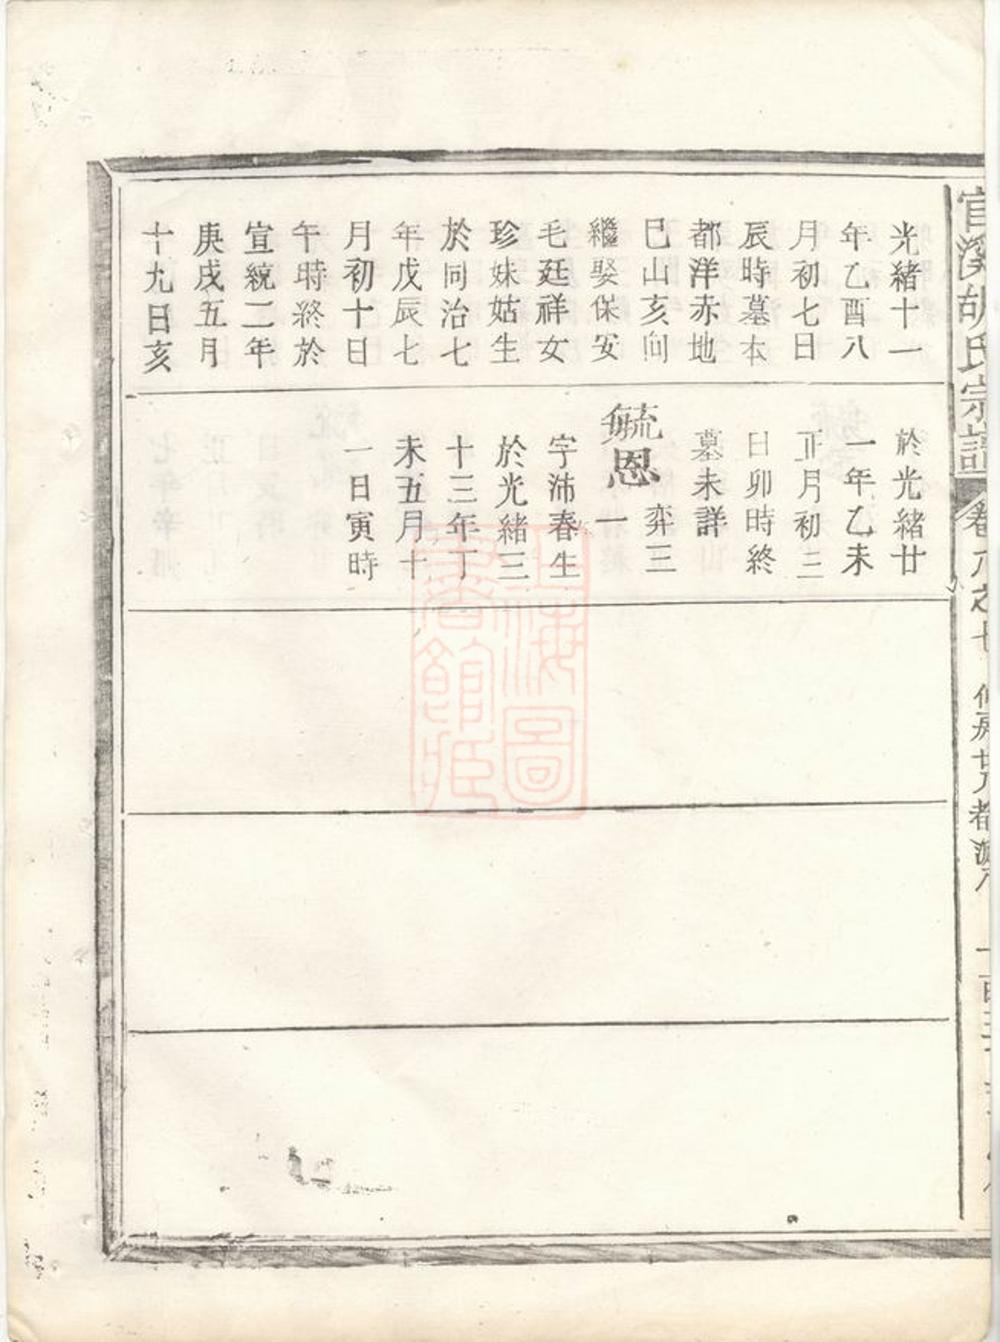 官溪胡氏宗譜
卷八之七
光緒十一
年乙酉八
月初七日
辰時墓本
都洋赤地
巳山亥向
繼娶保安
毛廷祥女
珍妹姑生
於同治七
年戊辰七
月初十日
午時終於
宣統二年
庚戌五月
十九日亥
於光緒廿
一年乙未
正月初三
日卯時終
墓未詳
毓恩 弈三一
字沛春生
於光緒三
十三年丁
未五月十
一日寅時
上海圖
書館藏